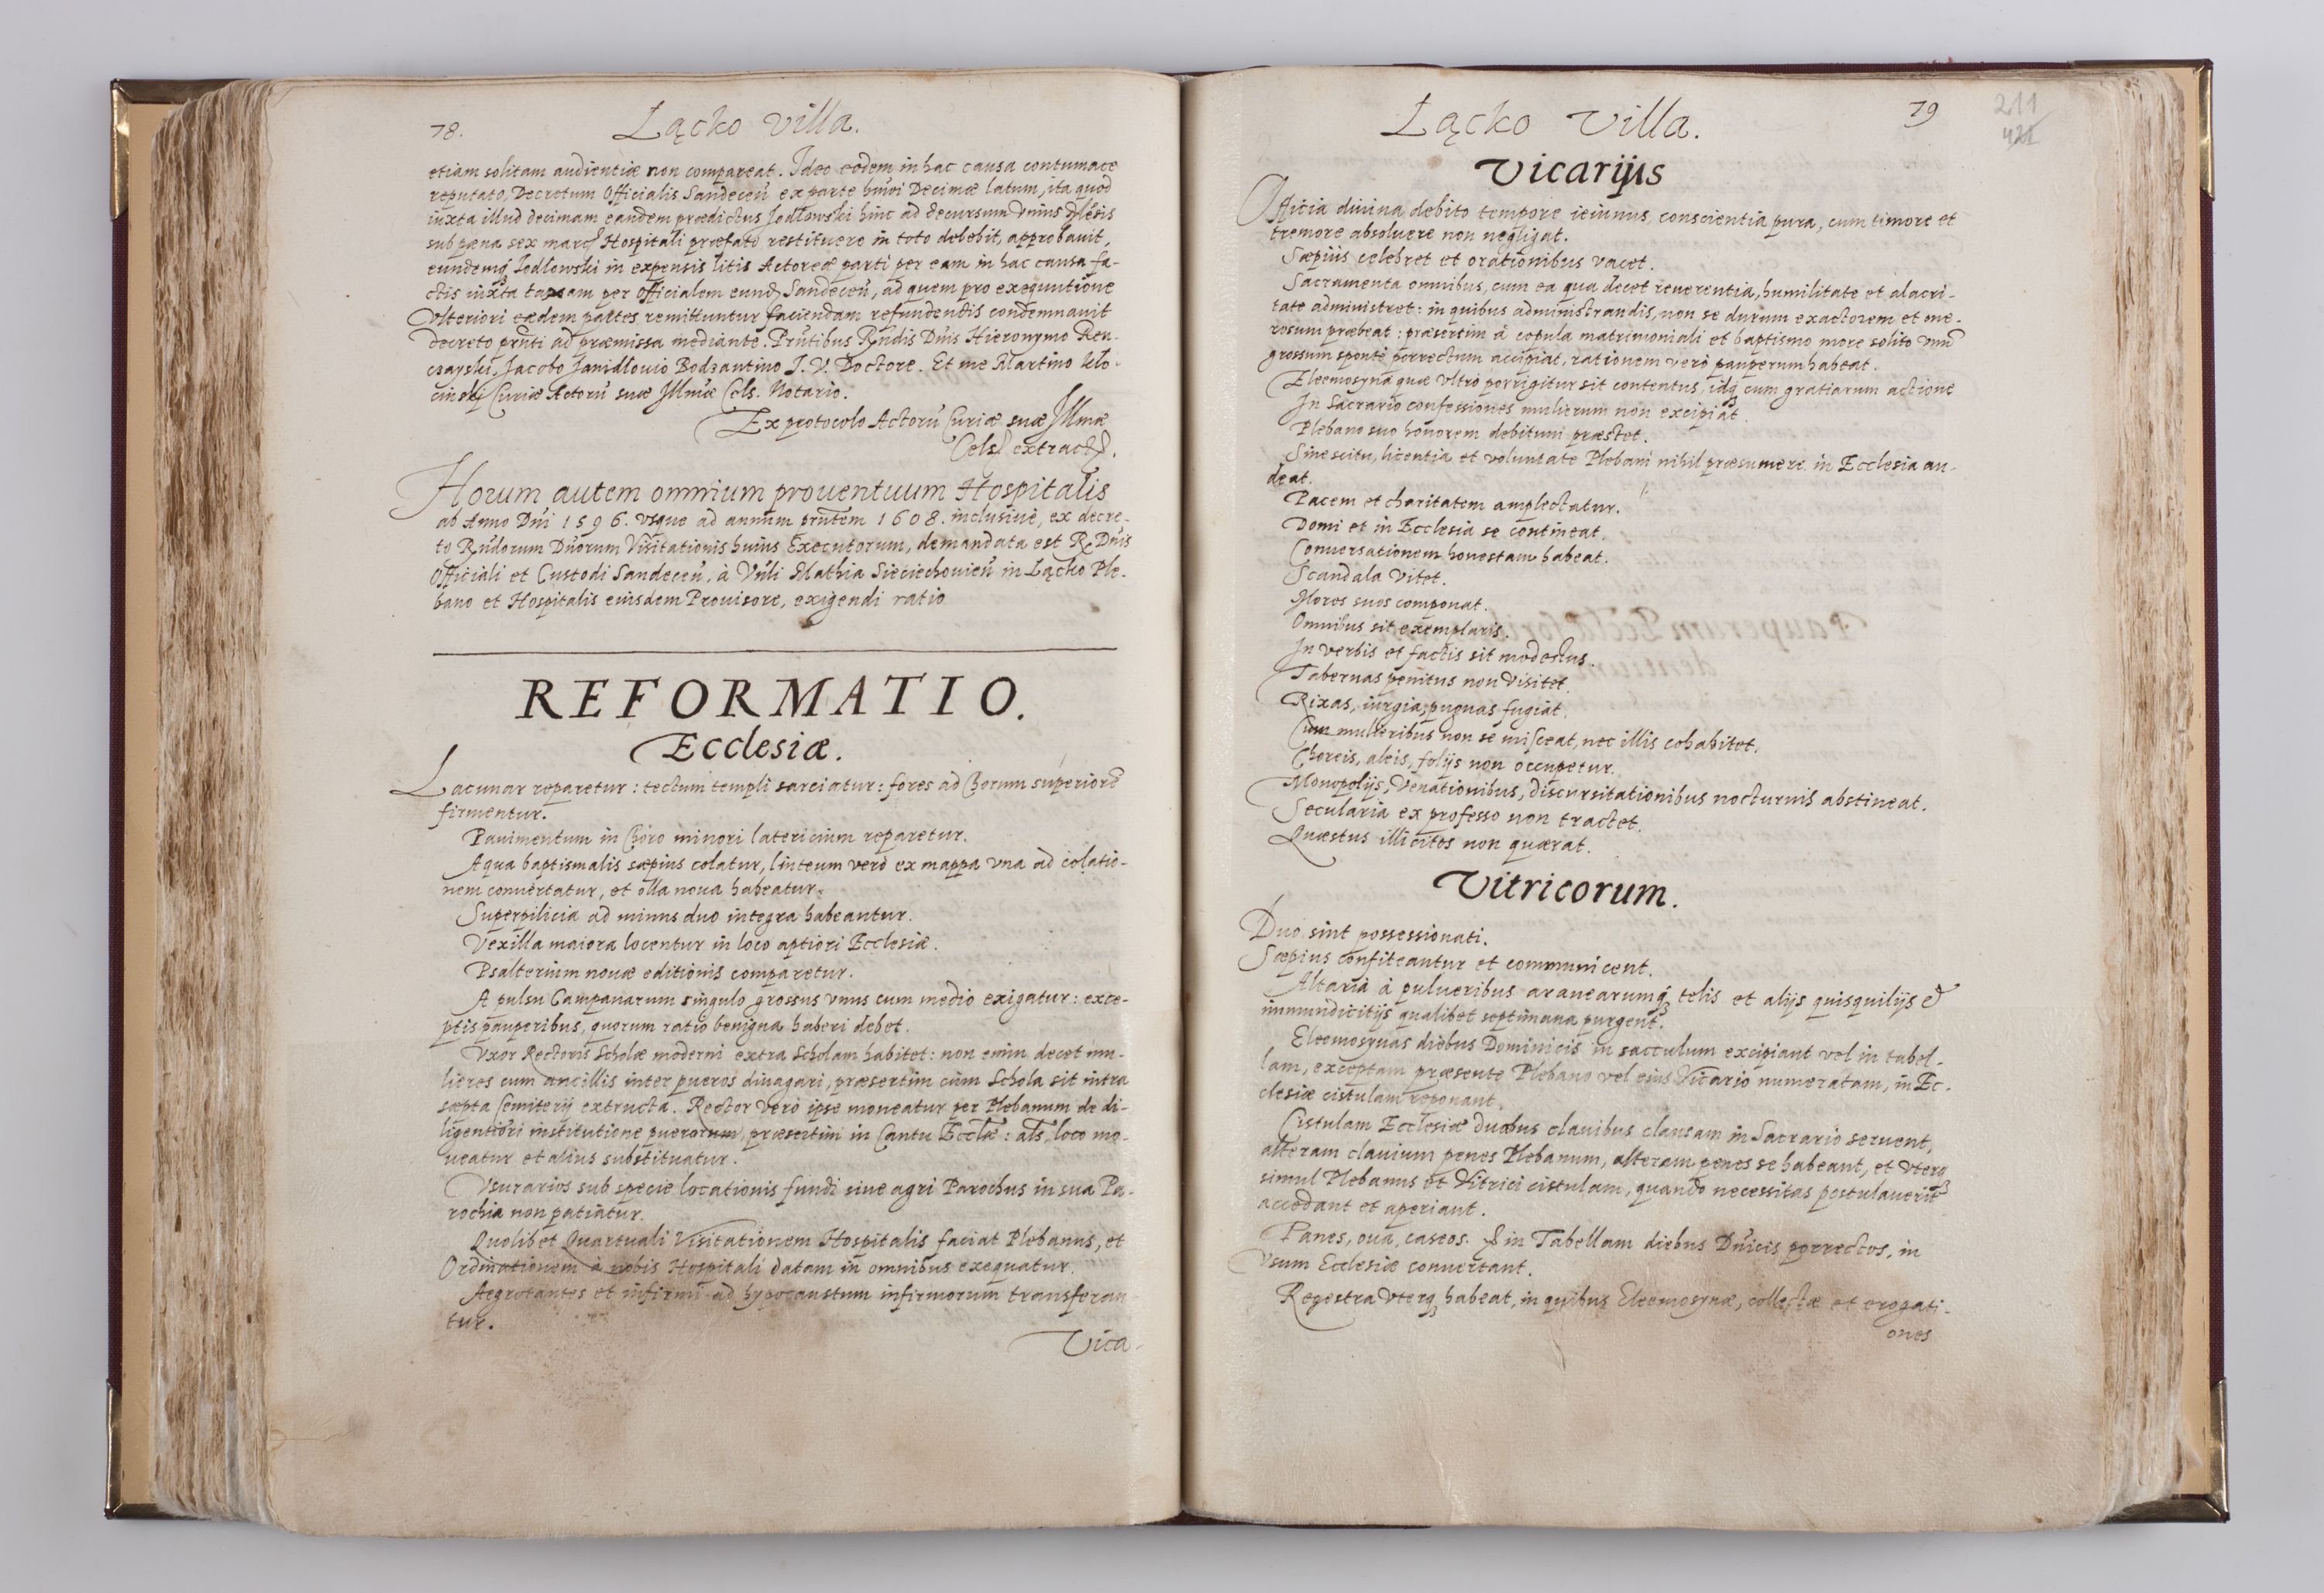 78.
Lącko Villa.
etiam solitam audientiæ non compareat. Ideo eodem in hac causa contumace
reputato, Decretum Officialis Sandeceñ ex parte huiõi Decimæ latum, ita quod
iuxta illud decimam eandem prædictus Jodłowski hinc ad decursum vnius
sub pæna sex marc Hospitali præfato restituere in toto debebit, approbauit,
eundemq Jodłowski in expensis litis Actoreæ parti per eam in hac causa fa-
ctis iuxta taxam per Officialem eund Sandeceñ, ad quem pro exequutione
Vlteriori eædem partes remittuntur faciendam refundentis condemnauit
decreto pñti ad præmissa mediante. Pñtibus Rñdis Dñis Hieronymo Ren-
czayski, Jacobo Janidłouio Bodzantino J. V. Doctore. Et me Martino Kło-
cinski Curiæ Actorũ suæ Jllmæ Cels. Notario.
Ex protocolo Actorũ Curiæ suæ Jllmæ
Cels extract.
Horum autem omnium prouentuum Hospitalis
ab Anno Dñi 1596. vsque ad annum pñtem 1608. inclusiuè, ex decre-
to Rñdorum Dñorum Visitationis huius Executorum, demandata est R Dñis
Officiali et Custodi Sandeceñ, à Vñli Mathia Sieciechouieñ in Lącko Ple-
bano et Hospitalis eiusdem Prouisore, exigendi ratio
REFORMATIO.
Ecclesiæ.
Lacunar reparetur: tectum templi sarciatur: fores ad Chorum superiorẽ
firmentur.
Pauimentum in Choro minori latericium reparetur.
Aqua baptismalis sæpius colatur, linteum verò ex mappa vna ad colatio-
nem conuertatur, et olla noua habeatur.
Superpilicia ad minus duo integra habeantur.
Vexilla maiora locentur in loco aptiori Ecclesiæ.
Psalterium nouæ editionis comparetur.
A pulsu Campanarum singulo grossus vnus cum medio exigatur: exce-
ptis pauperibus, quorum ratio benigna haberi debet.
Vxor Rectoris Scholæ moderni extra Scholam habitet: non enim decet mu-
lieres cum ancillis inter pueros diuagari, præsertim cùm Schola sit intra
sæpta Cemiterij extructa. Rector verò ipse moneatur per Plebanum de di-
ligentiori institutione puerorum, præsertim in Cantu Eccłæ: als loco mo-
ueatur et alius substituatur.
Vsurarios sub specie locationis fundi siue agri Parochus in sua Pa-
rochia non patiatur.
Quolibet Quartuali Visitationem Hospitalis faciat Plebanus, et
Ordinationem à nobis Hospitali datam in omnibus exequatur.
Aegrotantes et infirmi ad hypocaustum infirmorum transferan-
tur.
Vica-
Lącko Villa.
79
211
421
Vicarijus
Officia diuina debito tempore ieiunus, conscientia pura, cum timore et
tremore absoluere non negligat.
Sæpiùs celebret et orationibus vacet.
Sacramenta omnibus, cum ea qua decet reuerentia, humilitate et alacri-
tate administret: in quibus administrandis, non se durum exactorem et one-
rosum præbeat: præsertim à copula matrimoniali et baptismo more solito vnũ
grossum spontè porrectum accipiat, rationem verò pauperum habeat.
Eleemosyna quæ vltrò porrigitur sit contentus, idq cum gratiarum actione
In Sacrario confessiones mulierum non excipiat.
Plebano suo honorem debitum præstet.
Sine scitu, licentia et voluntate Plebani nihil præsumere in Ecclesia au-
deat.
Pacem et charitatem amplectatur.
Domi et in Ecclesia se contineat.
Conuersationem honestam habeat.
Scandala vitet.
Mores suos componat.
Omnibus sit exemplaris.
In verbis et factis sit modestus.
Tabernas penitus non visitet.
Rixas, iurgia, pugnas fugiat.
Cum mulieribus non se misceat, nec illis cohabitet.
Choreis, aleis, folijs non occupetur.
Monopolijs, Venationibus, discursitationibus nocturnis abstineat.
Secularia ex professo non tractet.
Quæstus illicitos non quærat.
Vitricorum.
Duo sint possessionati.
Sæpius confiteantur et communicent.
Altaria à pulueribus aranearumq telis et alijs quisquilijs &
immundicitijs qualibet septimana purgent.
Eleemosynas diebus Dominicis in sacculum excipiant vel in tabel-
lam, exceptam præsente Plebano vel eius Vicario numeratam, in Ec-
clesiæ cistulam reponant.
Cistulam Ecclesiæ duabus clauibus clausam in Sacrario seruent,
alteram clauium penes Plebanum, alteram penes se habeant, et vterq
simul Plebanus et Vitrici cistulam, quando necessitas postulauerit
accedant et aperiant.
Panes, oua, caseos. & in Tabellam diebus Dñicis porrectos, in
Vsum Ecclesiæ conuertant.
Regestra vterq habeat, in quibus Eleemosynæ, collectæ et erogati-
ones